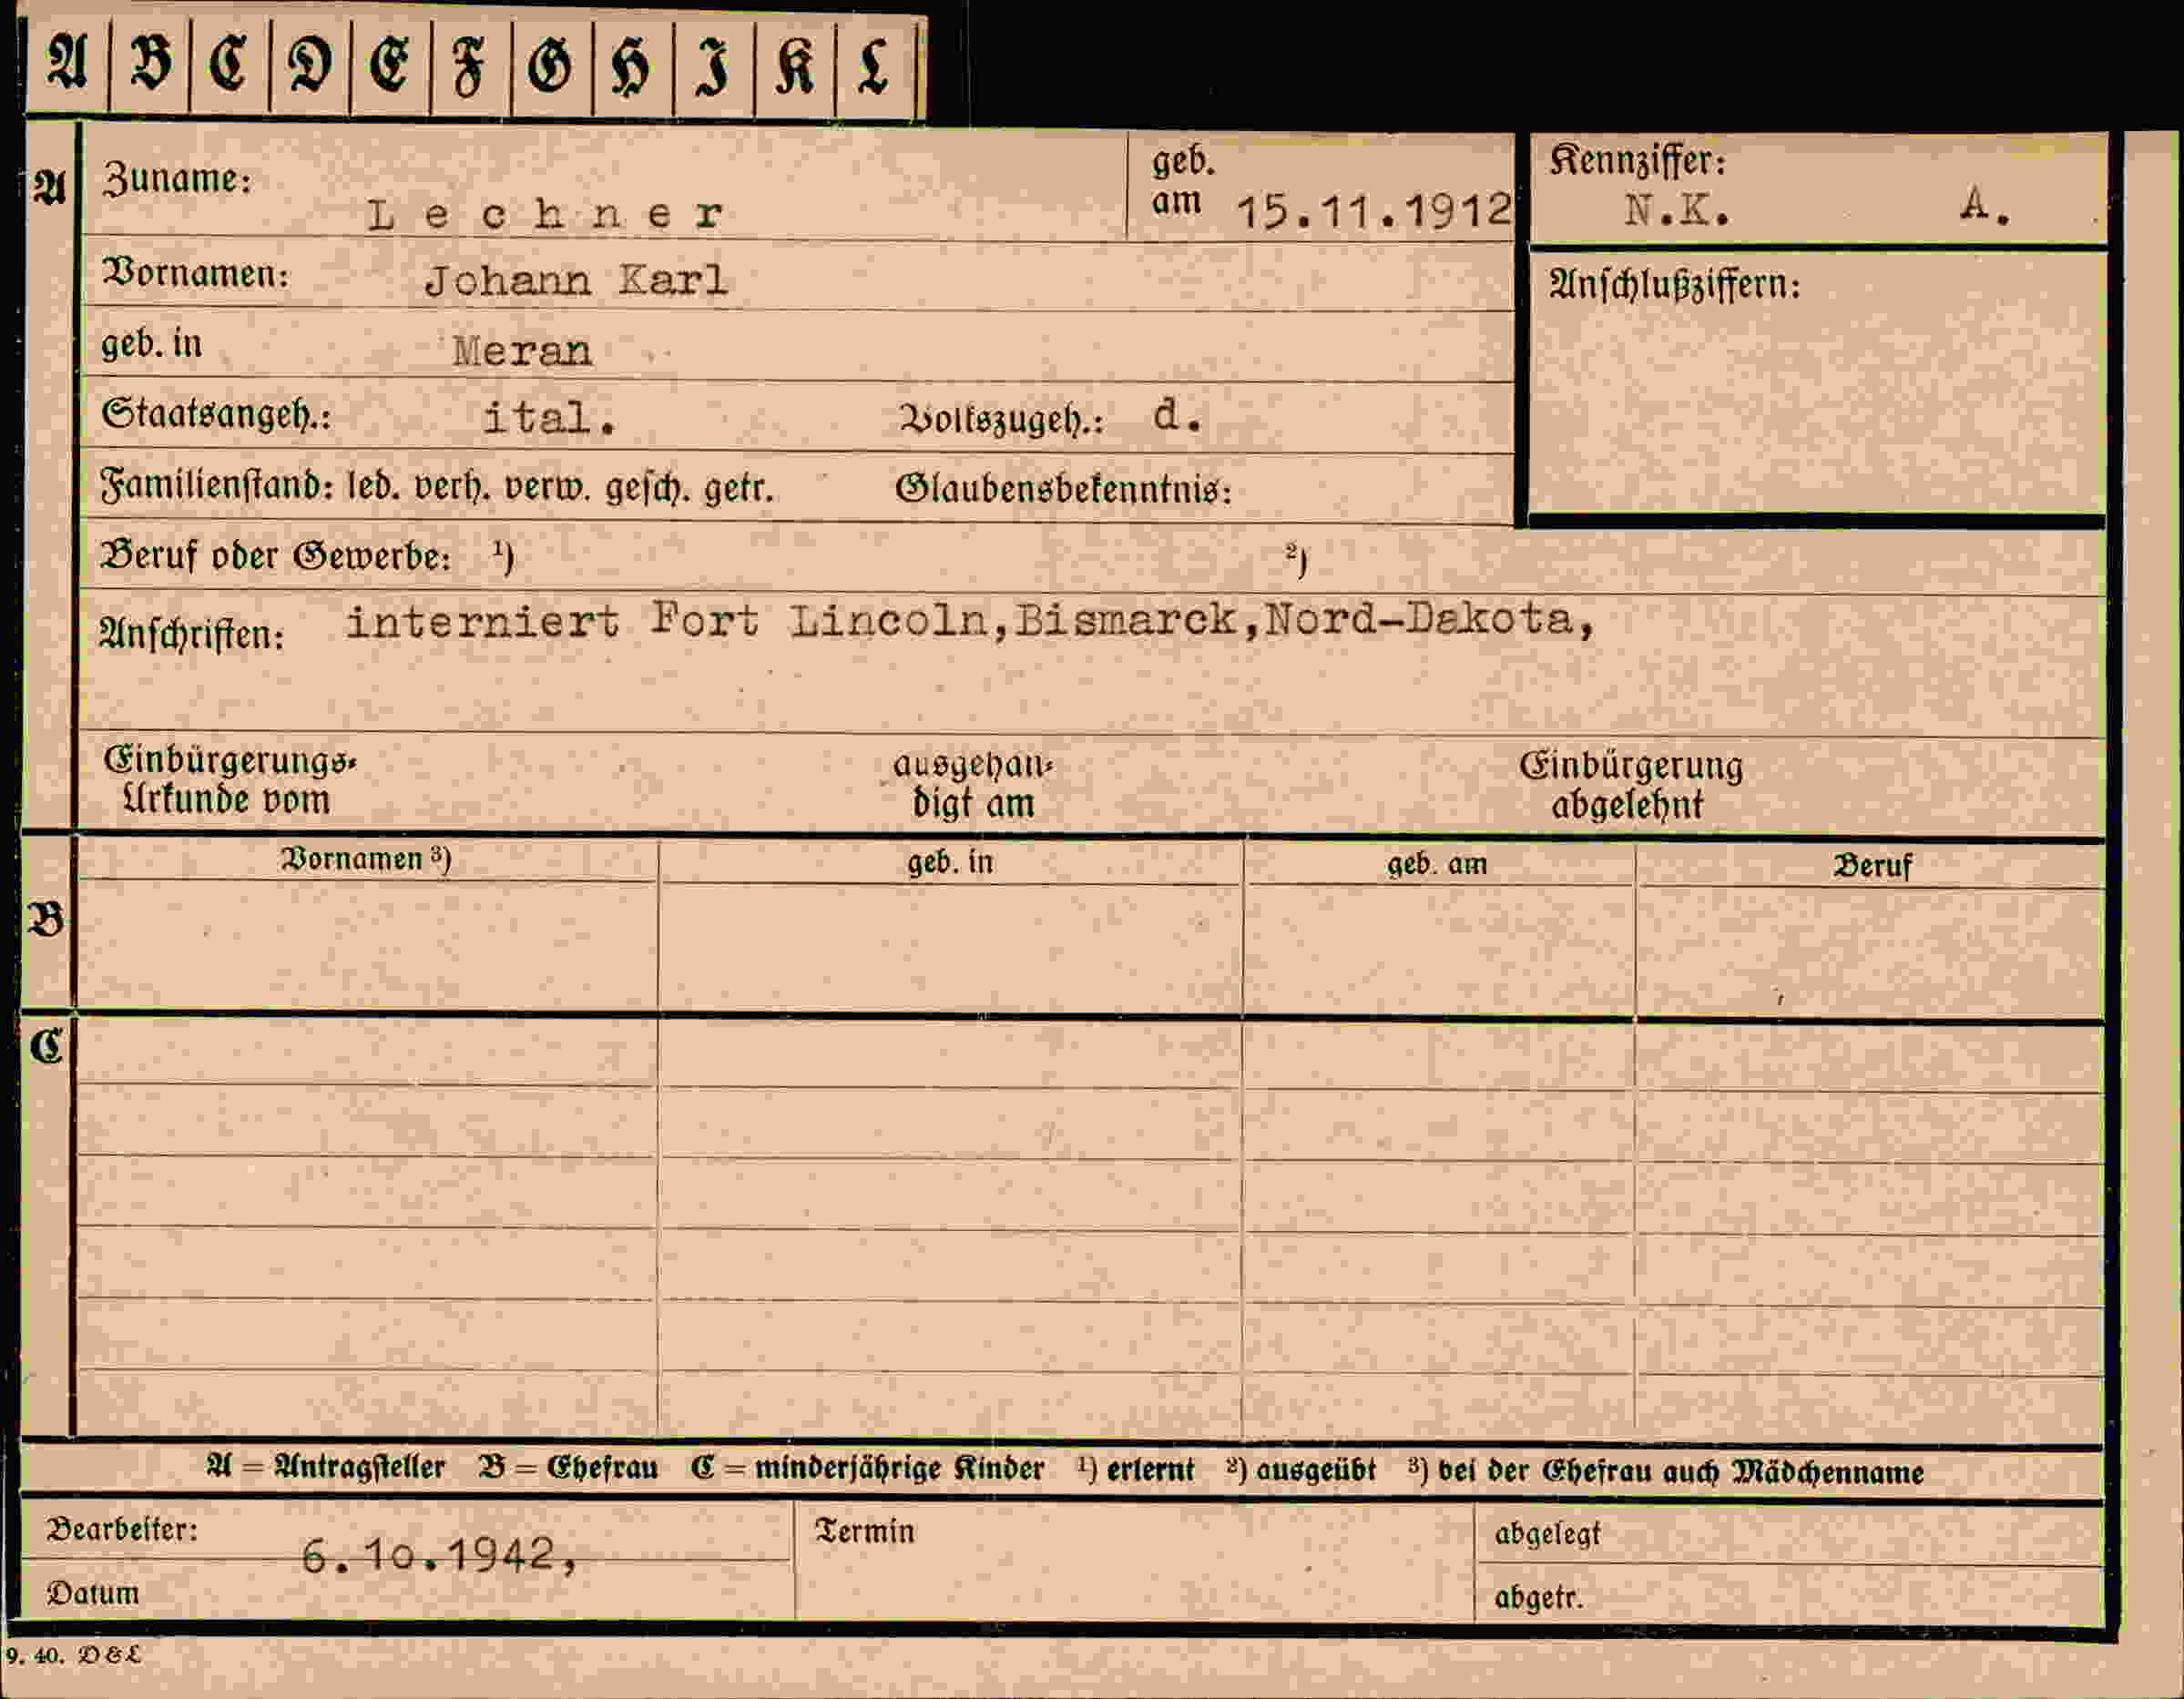 A B C D E F G H I K L
A Zuname: Lechner geb. am 15.11.1912 Kennziffer: N.K. A.
Vornamen: Johann Karl Anschlußziffern:
geb. in Meran
Staatsangeh.: ital. Volkszugeh.: d.
Familienstand: led. verh. verw. gesch. getr. Glaubensbekenntnis:
Beruf oder Gewerbe: ¹) ²)
Anschriften: interniert Fort Lincoln,Bismarck,Nord-Dakota,
Einbürgerungs- ausgehän- Einbürgerung
Urkunde vom digt am abgelehnt
Vornamen ³) geb. in geb. am Beruf
B
C
A = Antragsteller B = Ehefrau C = minderjährige Kinder ¹) erlernt ²) ausgeübt ³) bei der Ehefrau auch Mädchenname
Bearbeiter: Termin abgelegt
6.10.1942,
Datum abgetr.
9. 40. D & L